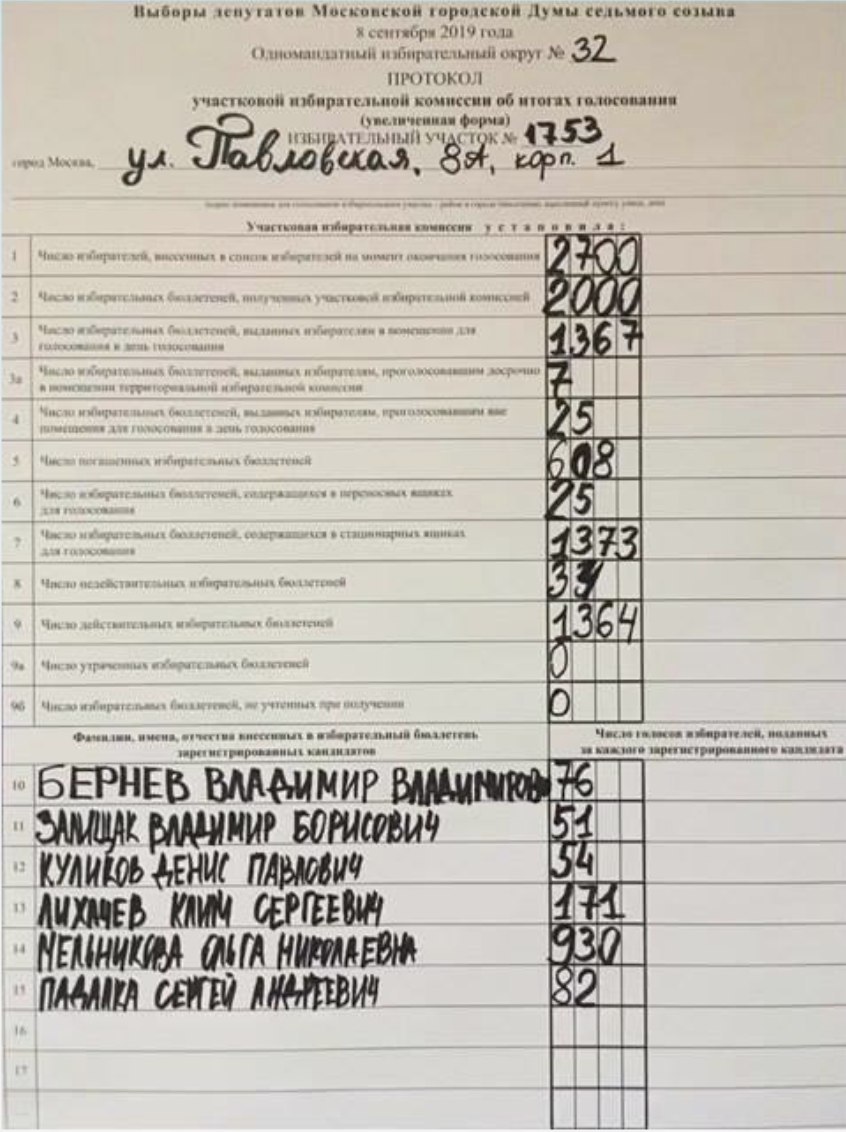 Выборы депутатов Московской городской Думы седьмого созыва
8 сентября 2019 года
Одномандатный избирательный округ № 32
ПРОТОКОЛ
участковой избирательной комиссии об итогах голосования
(увеличенная форма)
ИЗБИРАТЕЛЬНЫЙ УЧАСТОК № 1753
город Москва, ул. Павловская, 8А, корп. 1
Участковая избирательная комиссия установила:
1 Число избирателей, внесенных в список избирателей на момент окончания голосования 2700
2 Число избирательных бюллетеней, полученных участковой избирательной комиссией 2000
3 Число избирательных бюллетеней, выданных избирателям в помещении для
голосования в день голосования 1367
3а Число избирательных бюллетеней, выданных избирателям, проголосовавшим досрочно
в помещении территориальной избирательной комиссии 7
4 Число избирательных бюллетеней, выданных избирателям, проголосовавшим вне
помещения для голосования в день голосования 25
5 Число погашенных избирательных бюллетеней 608
6 Число избирательных бюллетеней, содержащихся в переносных ящиках
для голосования 25
7 Число избирательных бюллетеней, содержащихся в стационарных ящиках
для голосования 1373
8 Число недействительных избирательных бюллетеней
9 Число действительных избирательных бюллетеней 1364
9а Число утраченных избирательных бюллетеней 0
9б Число избирательных бюллетеней, не учтенных при получении 0
Фамилии, имена, отчества внесенных в избирательный бюллетень
зарегистрированных кандидатов
Число голосов избирателей, поданных
за каждого зарегистрированного кандидата
10 БЕРНЕВ ВЛАДИМИР ВЛАДИМИРОВИ 76
11 ЗАЛИЩАК ВЛАДИМИР БОРИСОВИЧ 51
12 КУЛИКОВ ДЕНИС ПАВЛОВИЧ 54
13 ЛИХАЧЕВ КЛИМ СЕРГЕЕВИЧ 171
14 МЕЛЬНИКОВА ОЛЬГА НИКОЛАЕВНА 930
15 ПАДАЛКА СЕРГЕЙ АНДРЕЕВИЧ 82
16
17